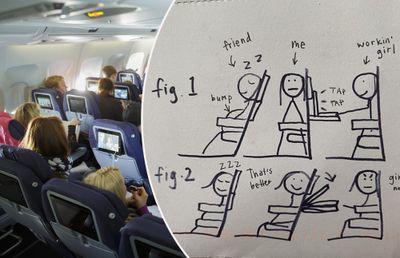 friend
me
workin'
girl
z z
fig. 1
bump
TAP
TAP
fig. 2
zzz
That's
better